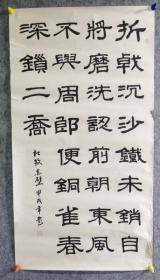 折戟沉沙鐵未銷自
將磨洗認前朝東風
不與周郎便銅雀春
深鎖二喬
杜牧赤壁 甲戌年書